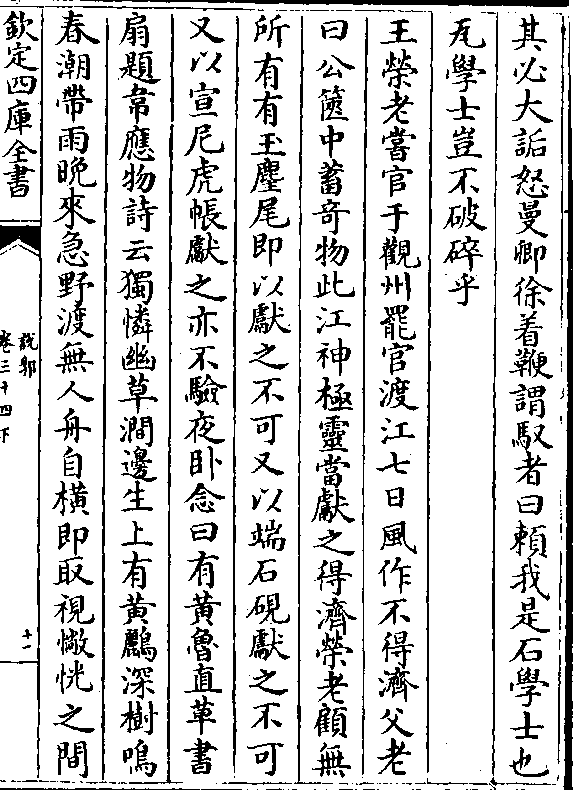 其必大詬怒曼卿徐着鞭謂馭者曰頼我是石學士也
瓦學士豈不破碎乎
王榮老嘗官于觀州罷官渡江七日風作不得濟父老
曰公篋中蓄奇物此江神極靈當獻之得濟榮老顧無
所有有玉麈尾即以獻之不可又以端石硯獻之不可
又以宣尼虎帳獻之亦不驗夜卧念曰有黄魯直草書
扇題韋應物詩云獨憐幽草澗邊生上有黄鸝深樹鳴
春潮帶雨晚來急野渡無人舟自橫即取視惝恍之間
欽定四庫全書
説郛
卷三十四下
十一